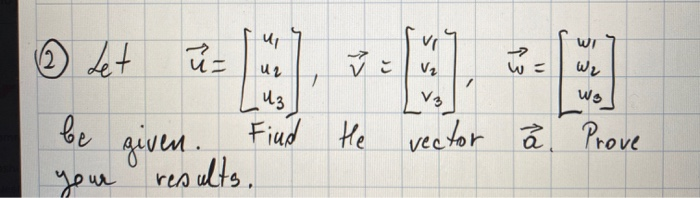 ② Let u⃗ = [u1 u2 u3], v⃗ = [v1 v2 v3], w⃗ = [w1 w2 w3]
be given. Find the vector a⃗. Prove
your results.